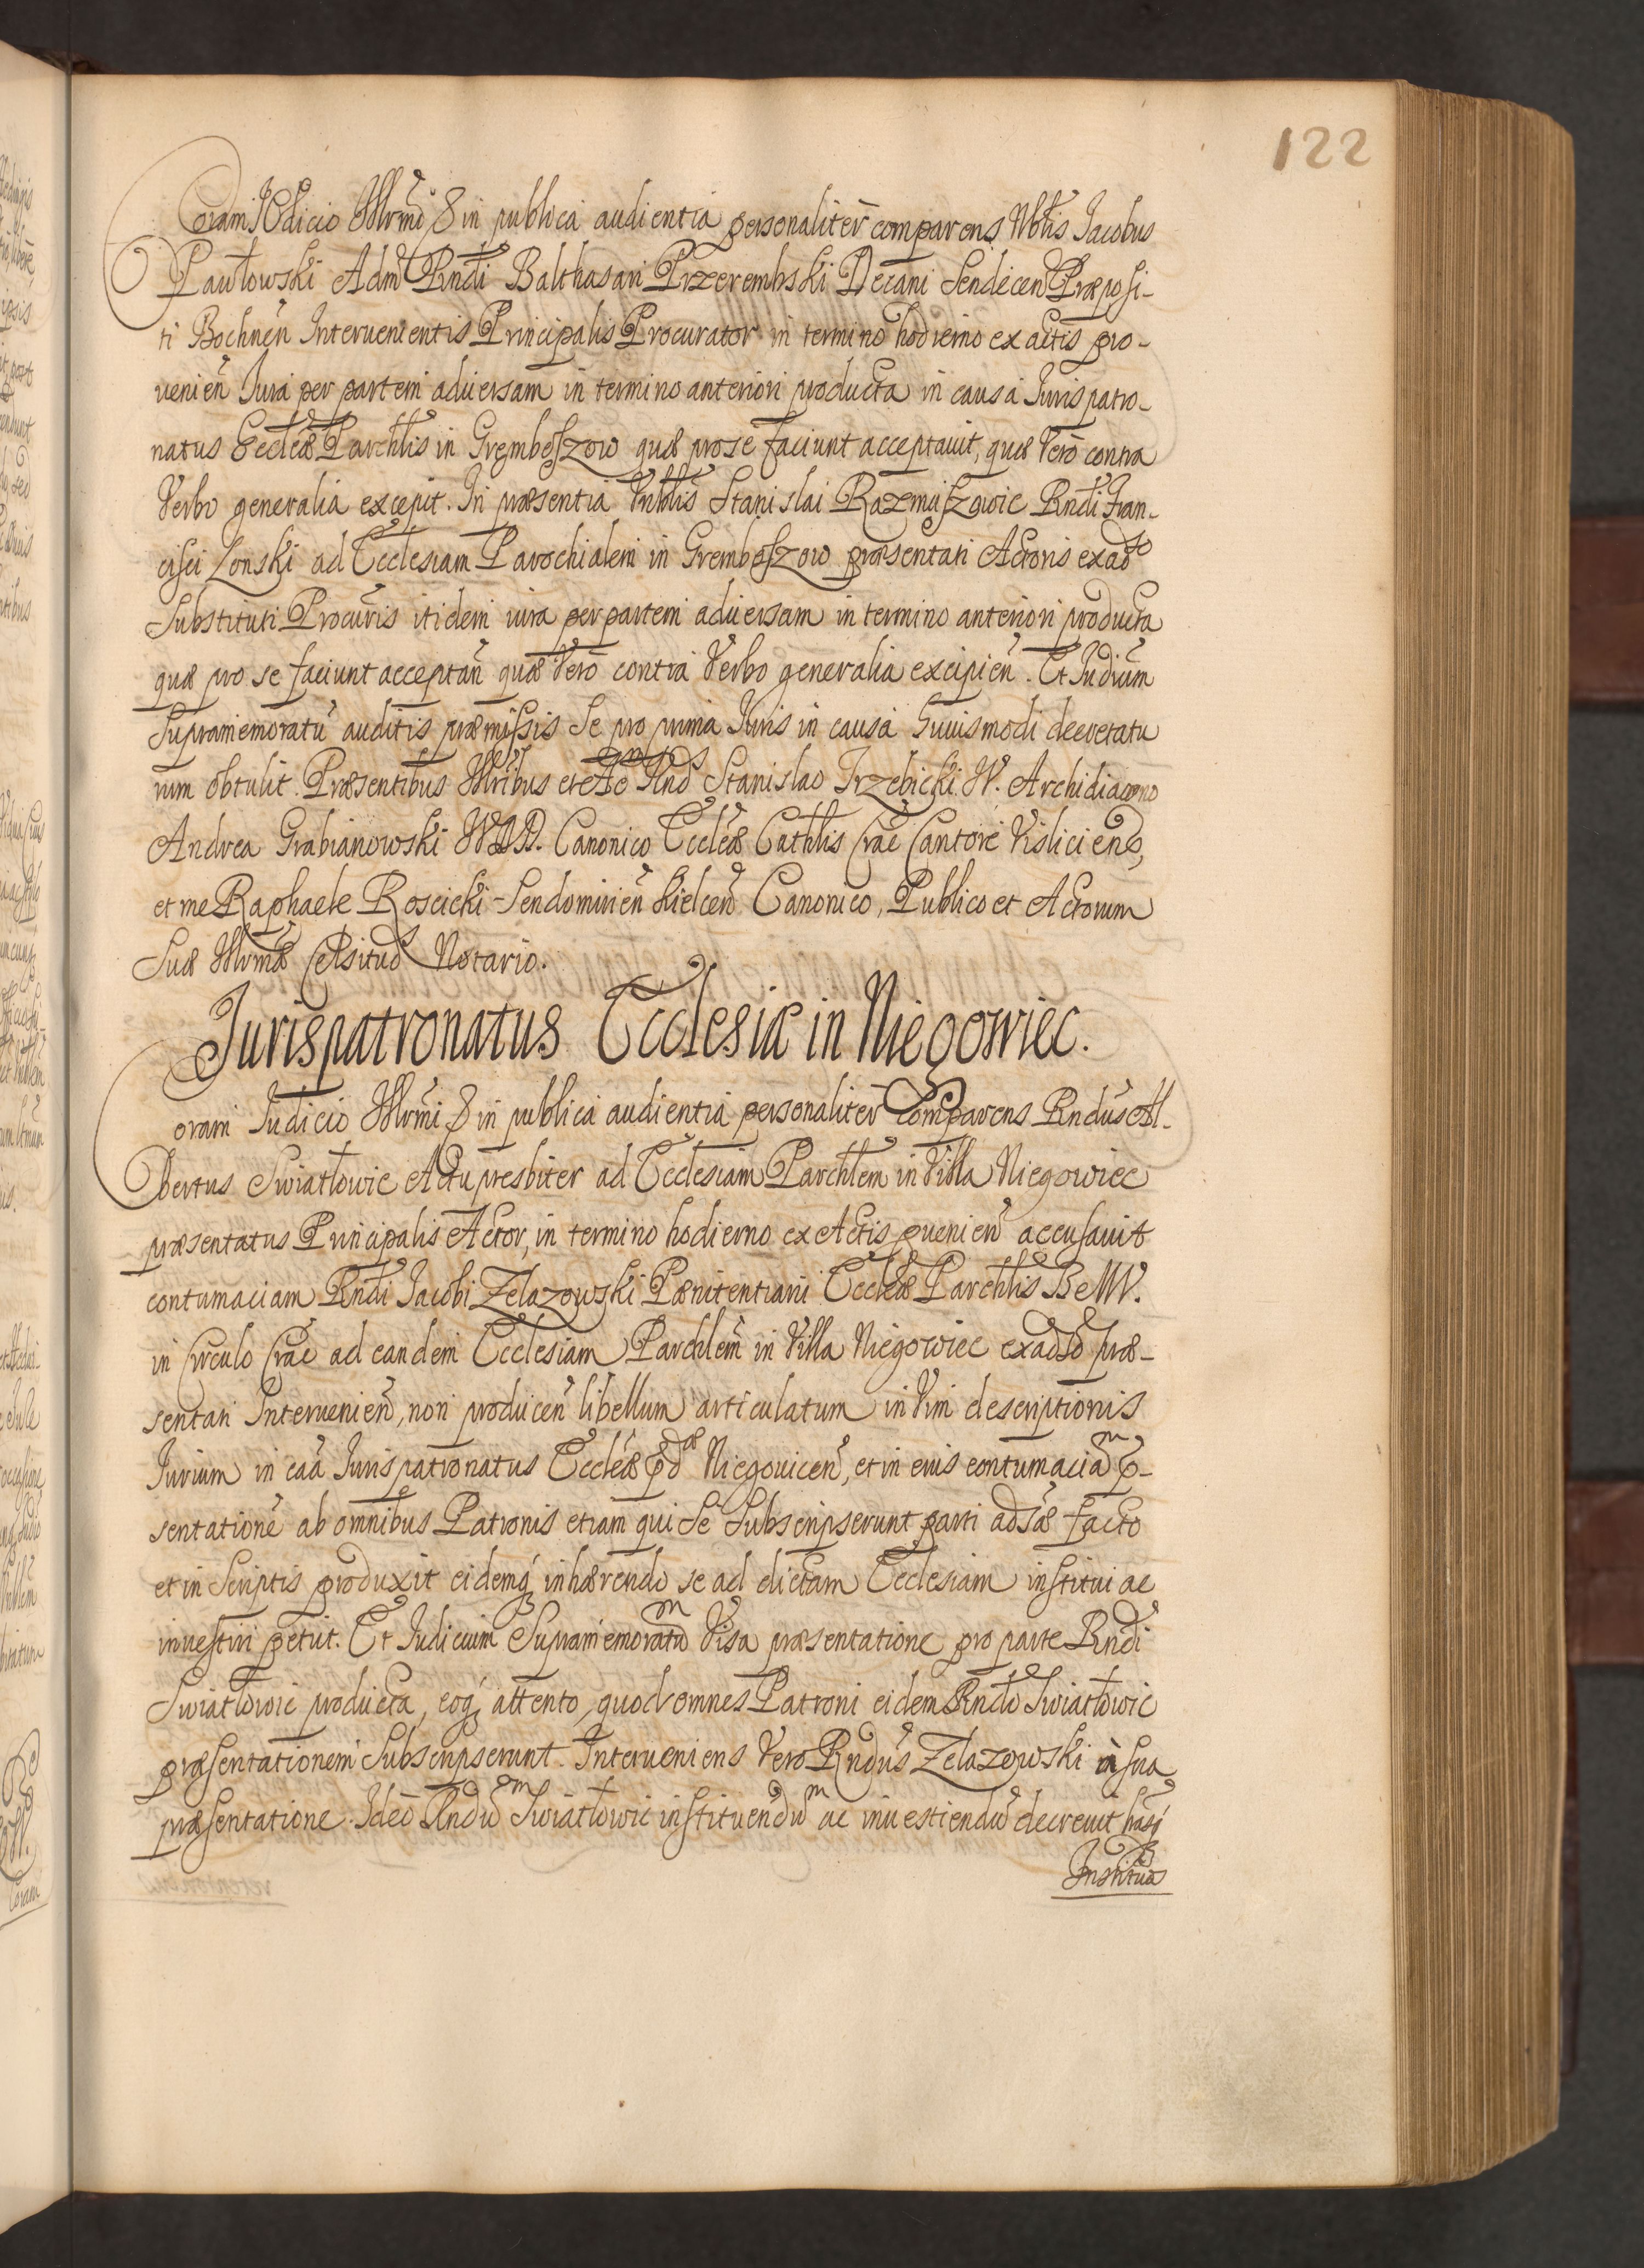 122
Coram Iudicio Illrmi & in publica audientia personaliter comparens Nblis Iacobus
Pawłowski Adm Rndi Balthasari Przerembski Decani Sendecen Præposi-
ti Bochnen Interuenientis Principalis Procurator in termino hodierno ex actis pro-
uenien Iura per partem aduersam in termino anteriori producta in causa Iurispatro-
natus Eccleæ Parchlis in Gremboszow quæ pro se faciunt acceptauit, quæ vero contra
Verbo generalia excepit. In præsentia Stanislai Razmuszowic Rndi Fran-
cisci Lonski ad Ecclesiam Parochialem in Gremboszow præsentati Actoris ex adso
Substituti Procuris itidem iura per partem aduersam in termino anteriori producta
quæ pro se faciunt acceptan quæ vero contra Verbo generalia excipien. Et Iudium
Supramemoratu auditis præmissis Se pro prima Iuris in causa huiusmodi decretatu
rum obtulit. Præsentibus Illribus et Ao Rnds Stanislao Trzebicki W. Archidiacono
Andrea Grabianowski Canonico Eccleæ Cathlis Crac Cantore Visliciens,
et me Raphaele Roscicki Sendomirien Kielcen Canonico, Publico et Actorum
Suæ Illrmæ Celsitud Notario.
Iurispatronatus Ecclesiæ in Niegowiec.
Coram Iudicio Illrmi & in publica audientia personaliter Comparens Rndus Al-
bertus Swiatłowic Actu presbiter ad Ecclesiam Parchlem in Villa Niegowiec
præsentatus Principalis Actor, in termino hodierno ex Actis puenien accusauit
contumaciam Rndi Iacobi Zelazowski Pænitentiarii Eccleæ Parchlis B M V.
in Circulo Crac ad eandem Ecclesiam Parchlem in Villa Niegowiec ex adso præ-
sentati Interuenien, non producen libellum articulatum in Vim descriptionis
Iurium in caa Iurispatronatus Eccleæ pdæ Niegouicen, et in eius contumaciam p-
sentatione ab omnibus Patronis etiam qui Se Subscripserunt parti adsæ facto
et in Scriptis produxit eidemq inhærendo se ad dictam Ecclesiam institui ac
inuestiri petiit. Et Iudicium Supramemoratum Visa præsentatione pro parte Rndi
Swiatłowic producta, eoq attento, quod omnes Patroni eidem Rndo Swiatłowic
præsentationem Subscripserunt. Interueniens Vero Rndus Zelazowski in sua
præsentatione. Ideo Rndum Swiatłowic instituendum ac inuestiendu decreuit hasq
Institua